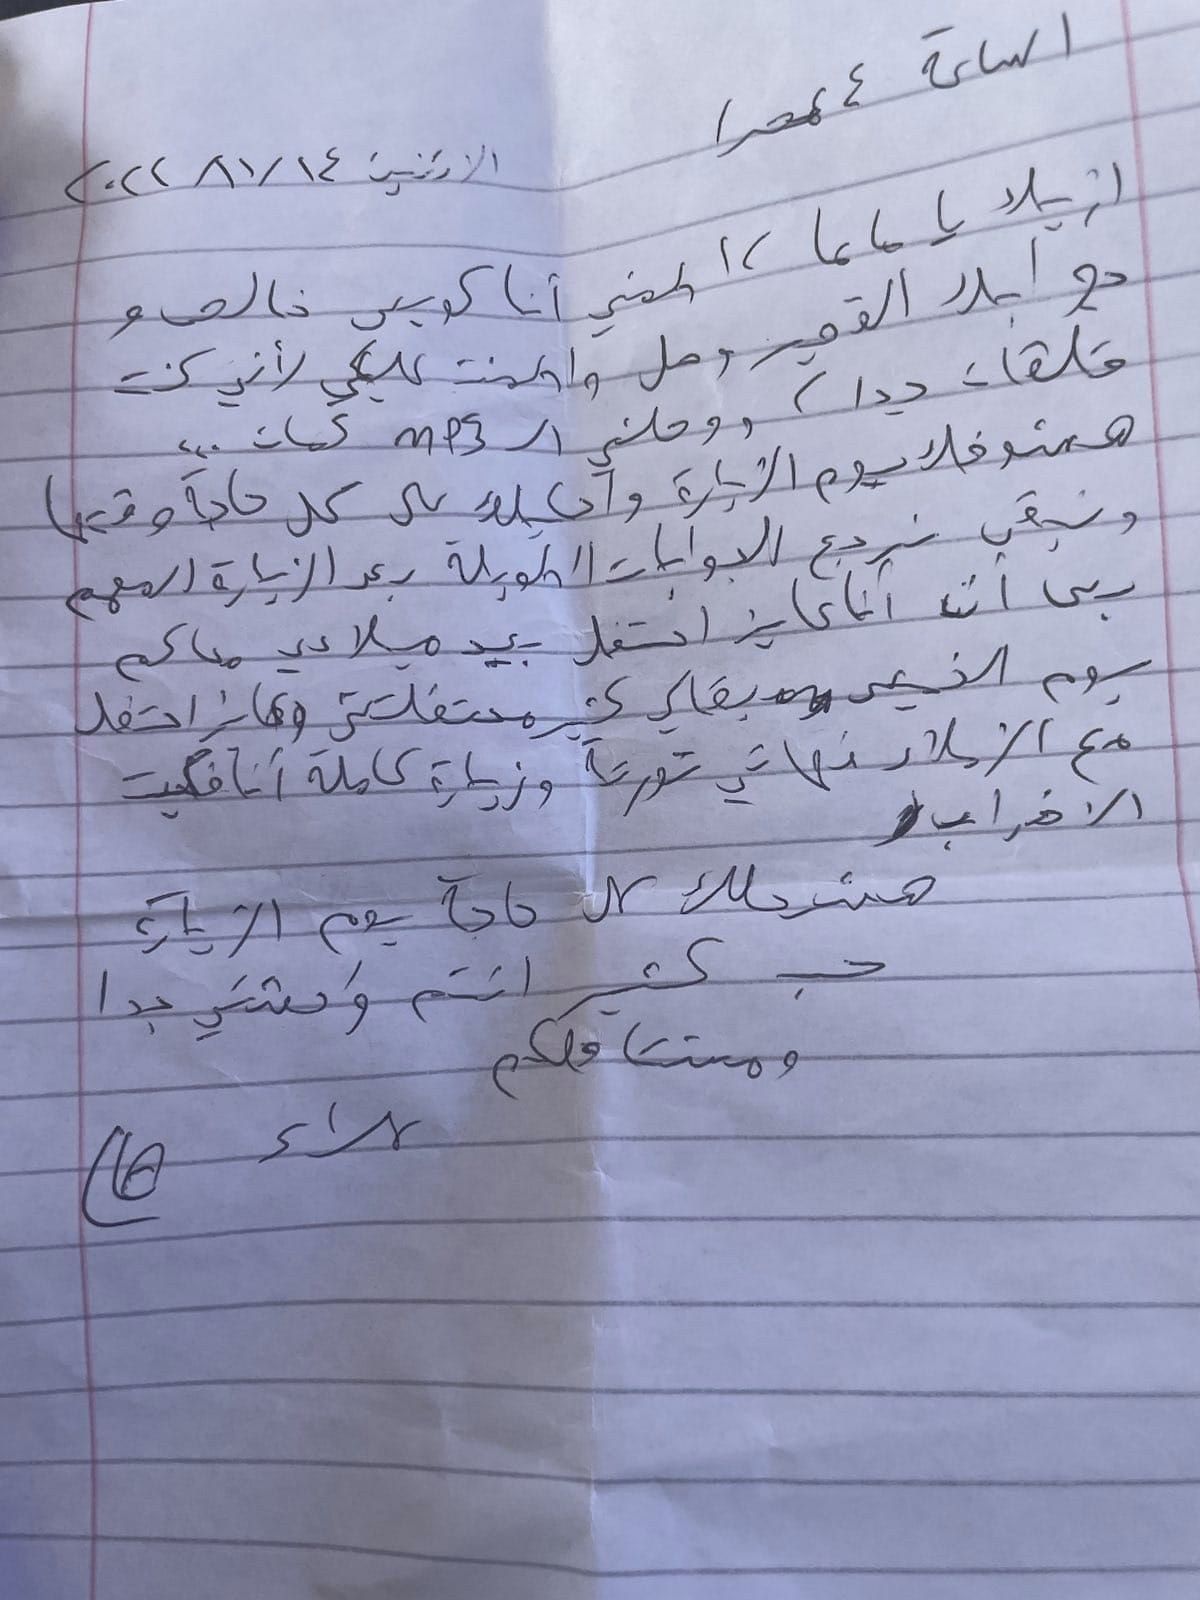 الساعة ٤ عصرا
الاثنين ١٤/١١/٢٠٢٢
ازيك يا ماما؟ اطمني أنا كويس خالص و
جوابك القصير وصل واطمنت عليكي لأني كنت
قلقان جدا، ووصلني الـ MP3 كمان ...
هشوفك يوم الزيارة وأحكيلك على كل حاجة وقتها
ونبقى نرجع للجوابات الطويلة بعد الزيارة المهم
بس أنا عايز احتفل بعيد ميلادي معاكم
يوم الخميس بقالي كتير محتفلتش وعايز احتفل
مع الزملاء فهاتي تورتة وزيارة كاملة أنا فكيت
الاضراب
هشرحلك كل حاجة يوم الزيارة
حب كتير انتم واحشني جدا
ومشتاقلكم
علاء